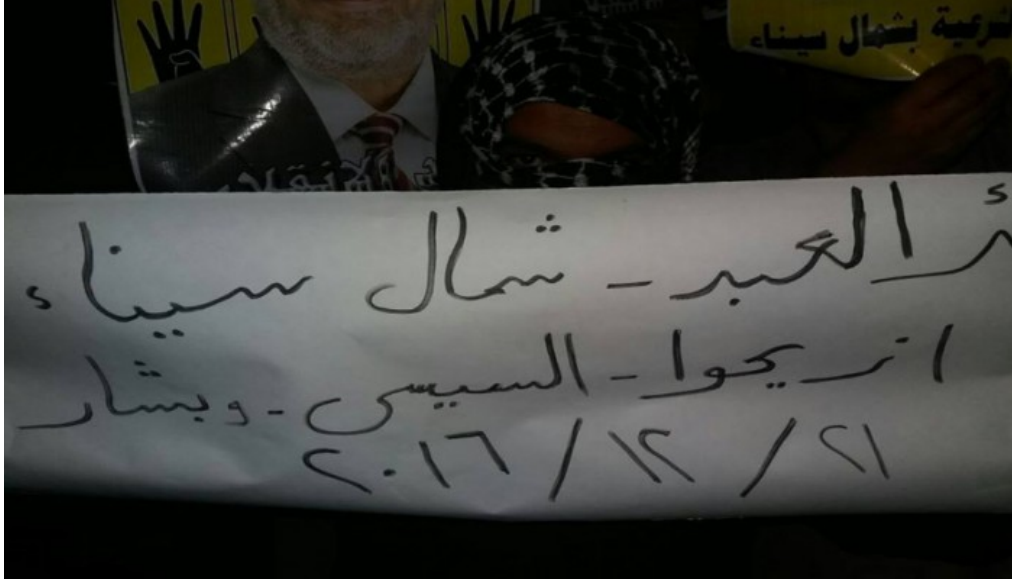 بشمال سيناء
ئر العبد - شمال سيناء
انزيحوا - السيسى - وبشار
٢١ / ١٢ / ٢٠١٦